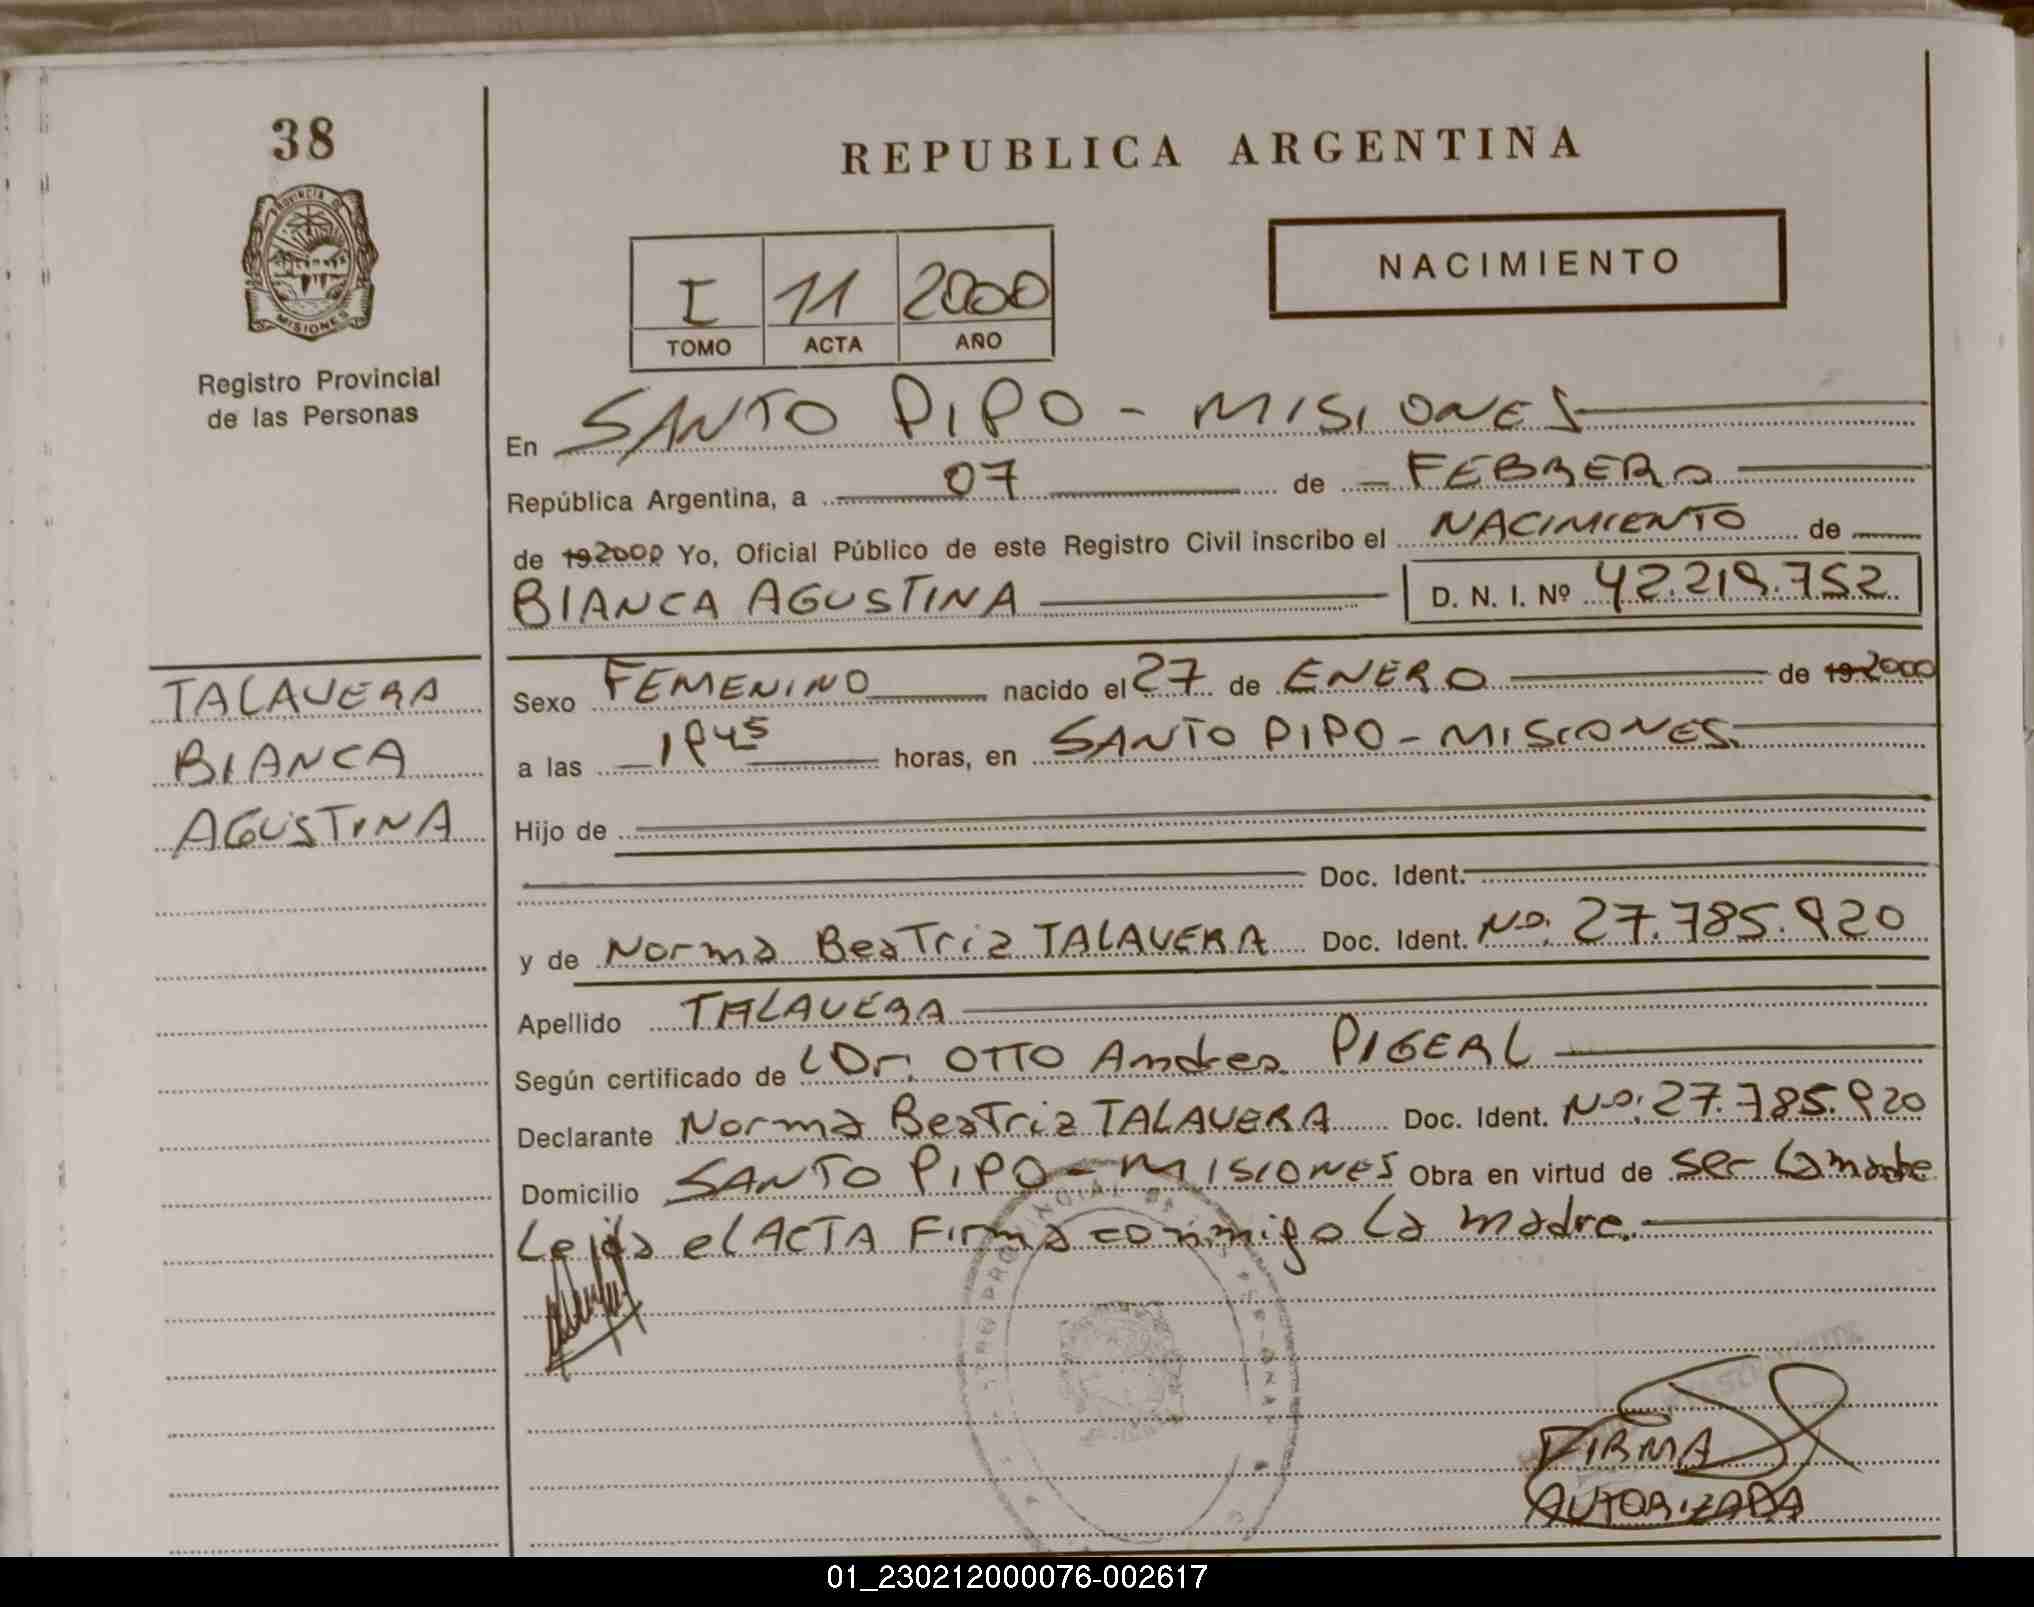 38
PROVINCIA DE
MISIONES
Registro Provincial
de las Personas
TALAVERA
BIANCA
AGUSTINA
REPUBLICA ARGENTINA
I 11 2000
TOMO ACTA AÑO
NACIMIENTO
En SANTO PIPO - MISIONES
República Argentina, a 07 de FEBRERO
de 19 2000 Yo, Oficial Público de este Registro Civil inscribo el NACIMIENTO de
BIANCA AGUSTINA D. N. I. Nº 42.219.752
Sexo FEMENINO nacido el 27 de ENERO de 19 2000
a las horas, en SANTO PIPO - MISIONES.
Hijo de
Doc. Ident.
y de Norma Beatriz TALAVERA Doc. Ident. No: 27.785.920
Apellido TALAVERA
Según certificado de Dr. OTTO Andres
Declarante Norma Beatriz TALAVERA Doc. Ident. No: 27.785.920
Domicilio SANTO PIPO - MISIONES Obra en virtud de ser la madre
Leida el ACTA Firma conmigo la madre.
FIRMA
AUTORIZADA
01_230212000076-002617